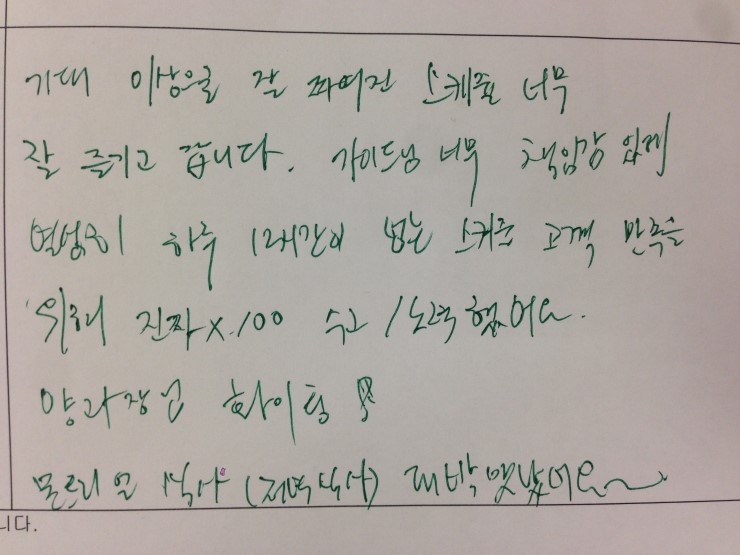 기대 이상으로 잘 짜여진 스케쥴 너무
잘 즐기고 갑니다. 가이드님 너무 책임감 있게
열성으 하루 12시간이 넘는 스케쥴 고객 만족을
위해 진짜 X.100 수고/노력했어요.
양과장님 화이팅
몬트리올 식사 (저녁식사) 대박 맛났어요~
니다.